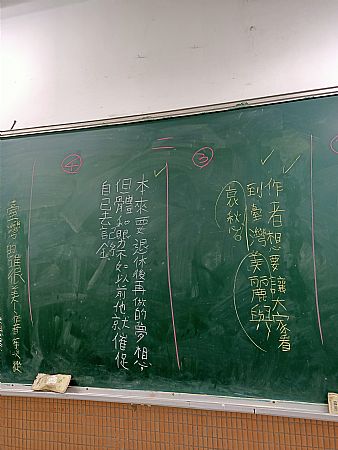 ③
作者想要讓大家看
到臺灣美麗與
哀愁
二
本來要退休後再做的夢想,
但體和不如以前他就催促
自己去記錄
④
臺灣的確很美